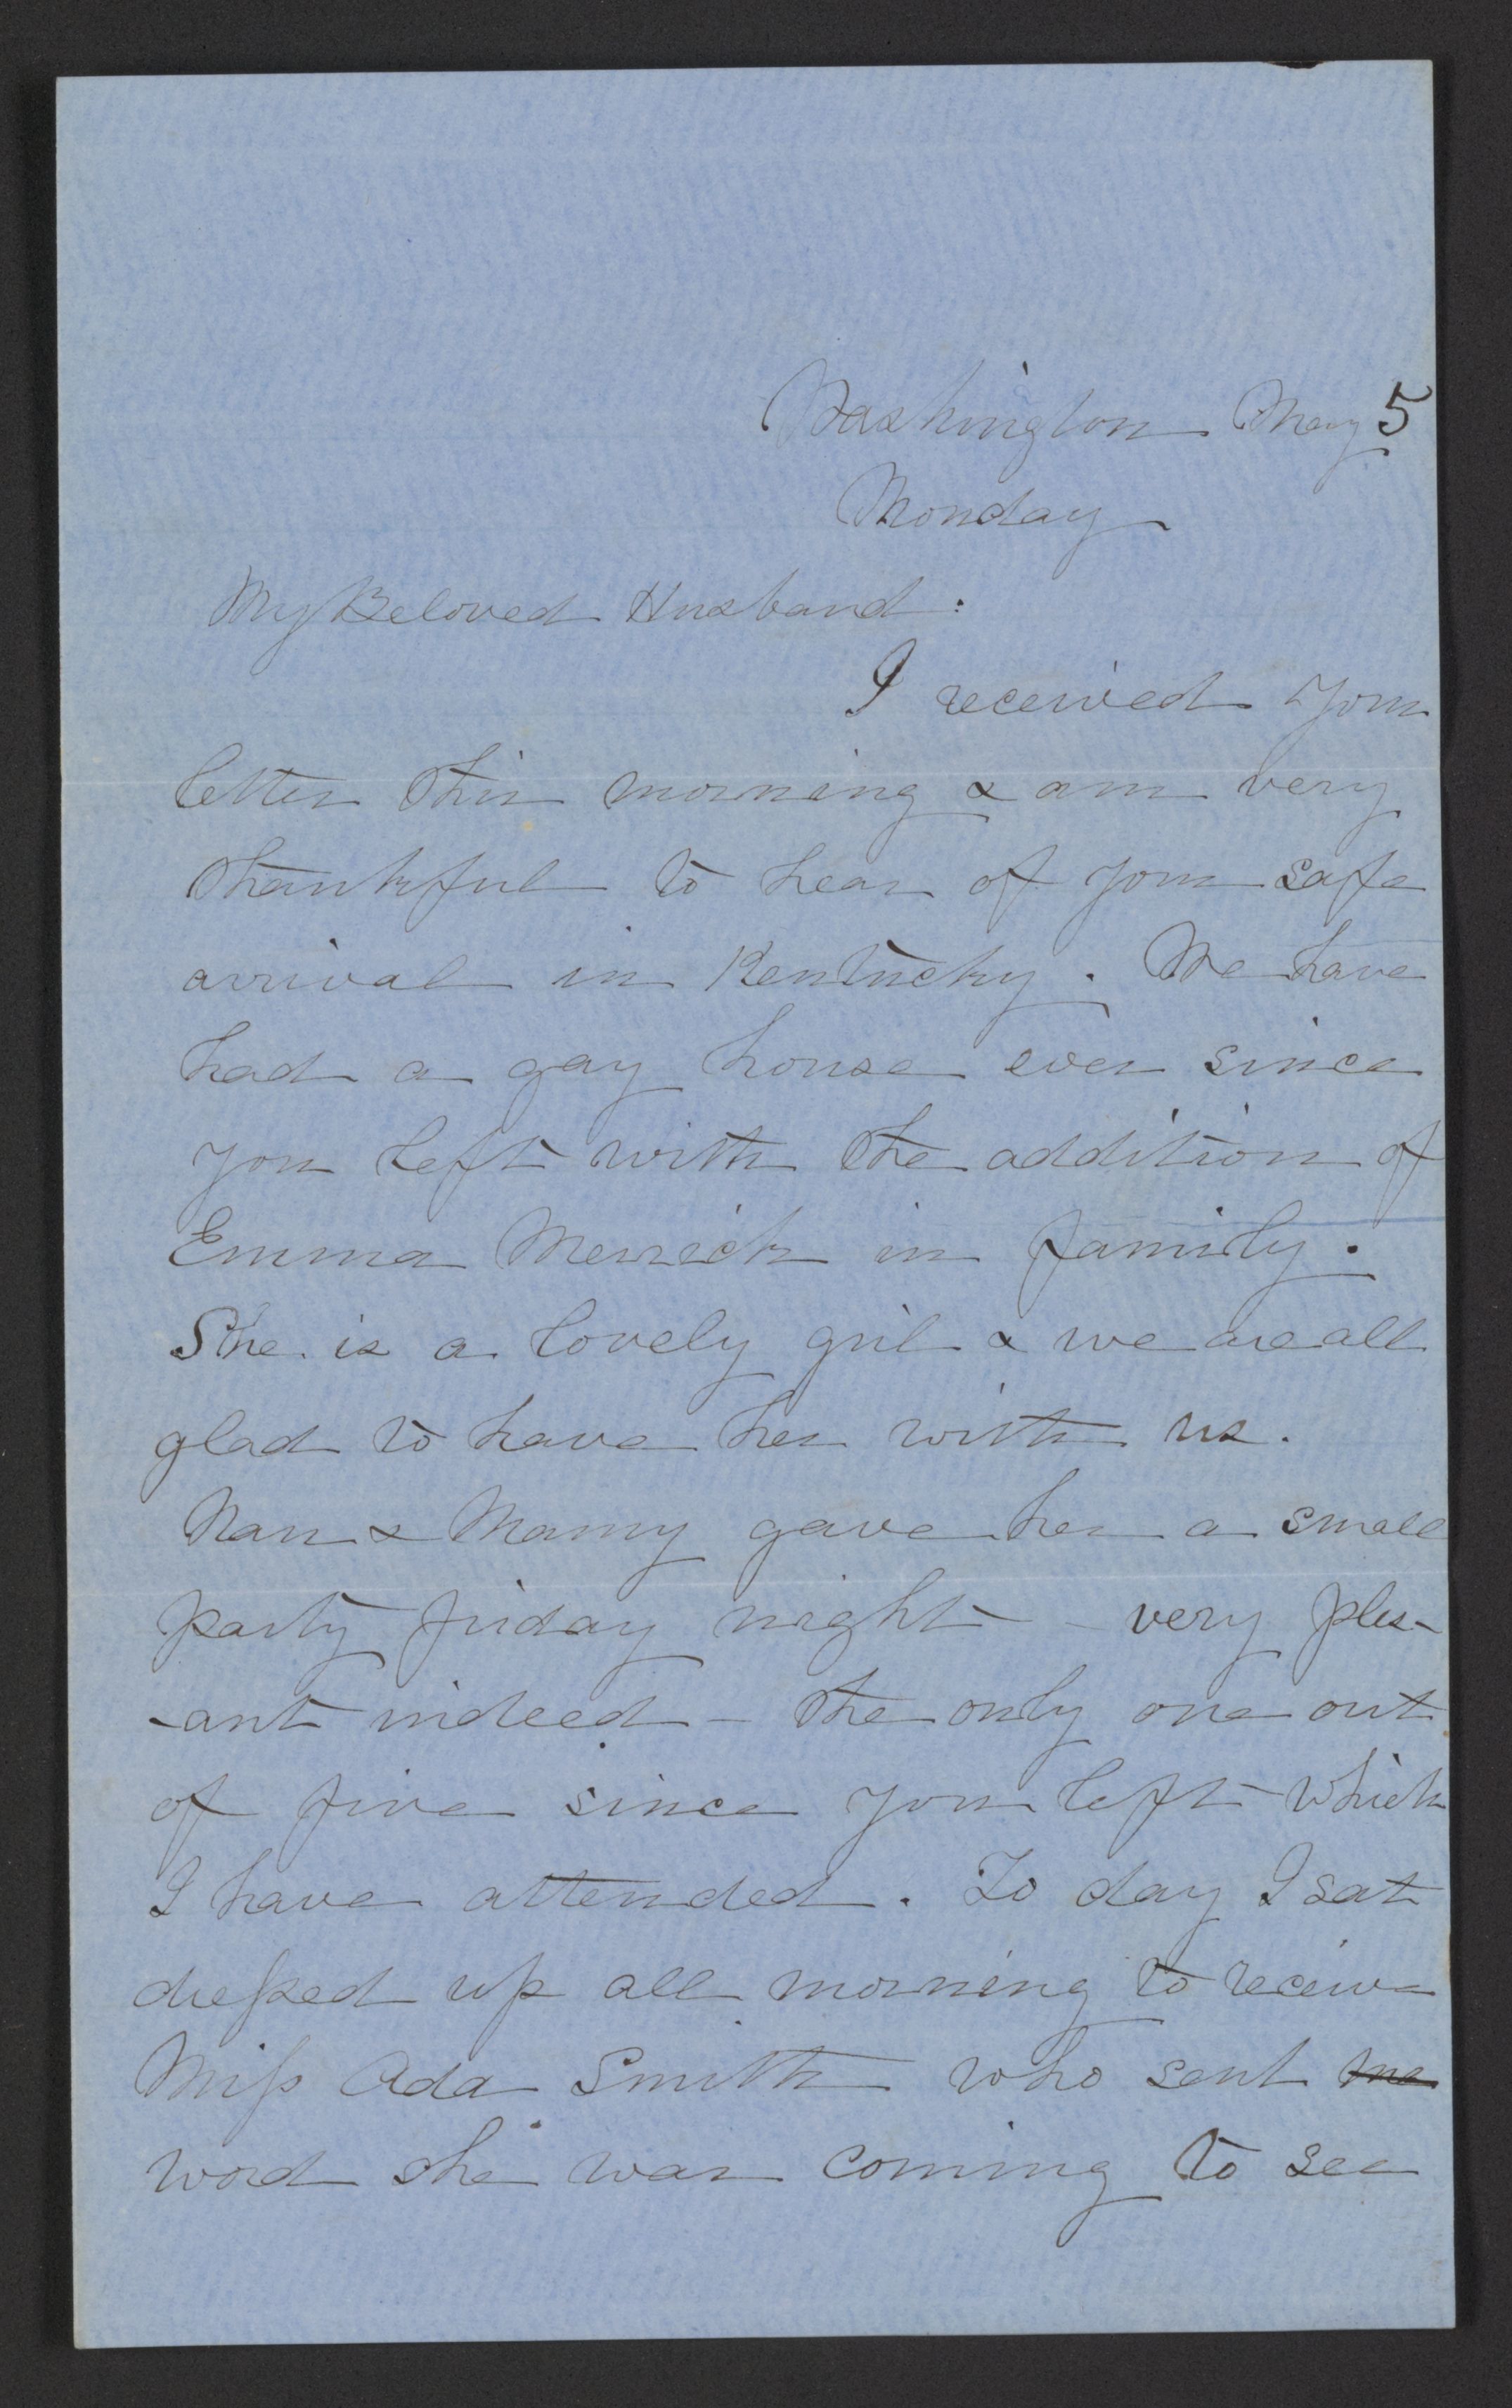 Washington May 5
Monday
My Beloved Husband:
I received your
letter this morning & am very
thankful to hear of your safe
arrival in Kentucky. We have
had a gay house ever since
you left with the addition of
Emma Merrick in family.
She is a lovely girl & we are all
glad to have her with us.
Nan & Mamy gave her a small
party friday night - very ples-
-ant indeed - the only one out
of five since you left which
I have attended. To day I sat
dressed up all morning to receive
Miss Ada Smith who sent me
word she was coming to see